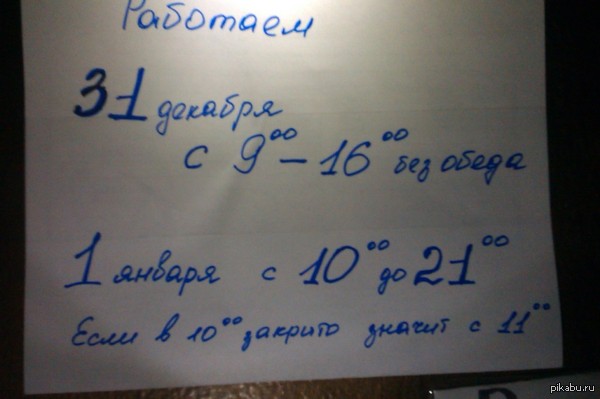 Работаем
31 декабря
с 9⁰⁰ – 16⁰⁰ без обеда
1 января с 10⁰⁰ до 21⁰⁰
Если в 10⁰⁰ закрито значит с 11⁰⁰
pikabu.ru